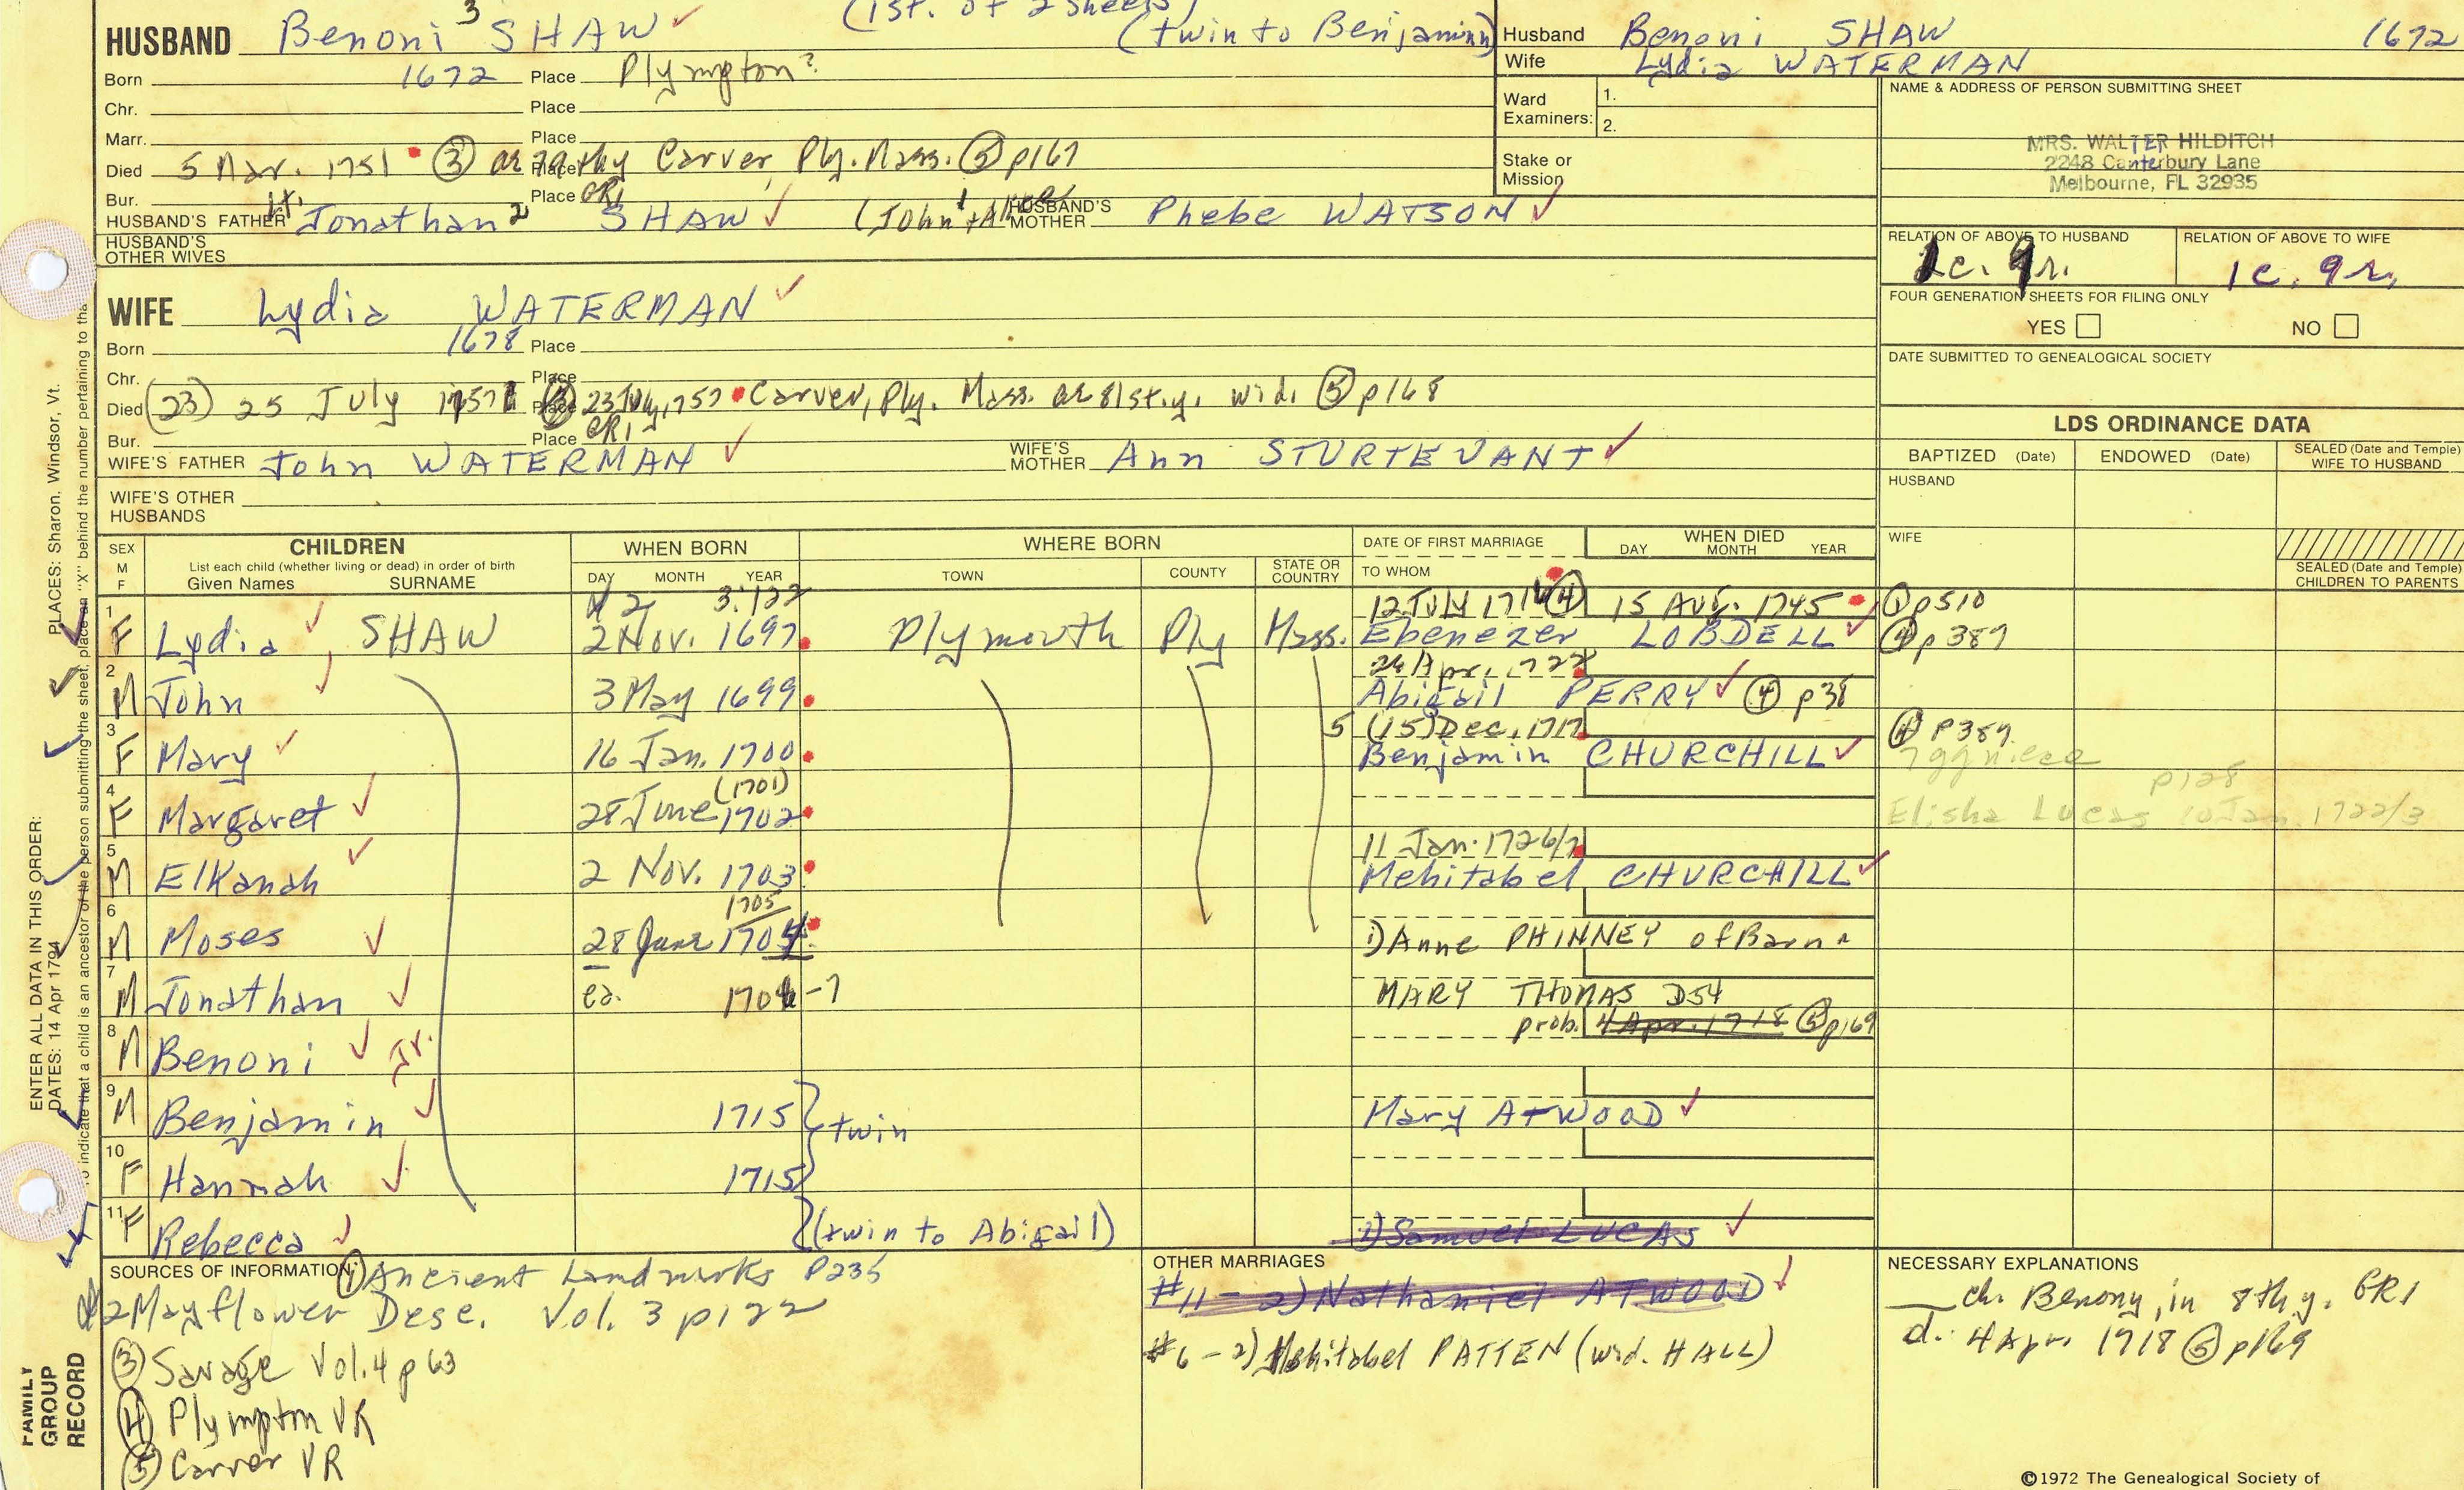 (1st. of 2 sheets)
HUSBAND Benoni 3 SHAW (twin to Benjamin)
Born 1672 Place Plympton?
Chr. Place
Marr. Place
Died 5 Mar. 1751 ③ Place Carver, Ply. Mass. ⑤ p167
Bur. Place GR1
HUSBAND'S FATHER Lt. Jonathan 2 SHAW (John 1 + HUSBAND'S MOTHER Phebe WATSON
HUSBAND'S OTHER WIVES
WIFE Lydia WATERMAN
Born 1678 Place
Chr. Place
Died (23) 25 July Place 23 July, 1757 Carver, Ply. Mass. ae 81st. y. wid. ⑤ p168
Bur. Place GR1
WIFE'S FATHER John WATERMAN WIFE'S MOTHER Ann STURTEVANT
WIFE'S OTHER HUSBANDS
Husband Benoni SHAW 1672
Wife Lydia WATERMAN
Ward Examiners: 1. 2.
Stake or Mission
NAME & ADDRESS OF PERSON SUBMITTING SHEET
MRS. WALTER HILDITCH
2248 Canterbury Lane
Melbourne, FL 32935
RELATION OF ABOVE TO HUSBAND RELATION OF ABOVE TO WIFE
1c. 9r. 1c. 9r.
FOUR GENERATION SHEETS FOR FILING ONLY
YES NO
DATE SUBMITTED TO GENEALOGICAL SOCIETY
LDS ORDINANCE DATA
BAPTIZED (Date) ENDOWED (Date) SEALED (Date and Temple) WIFE TO HUSBAND
HUSBAND
WIFE
SEALED (Date and Temple) CHILDREN TO PARENTS
SEX M F
CHILDREN
List each child (whether living or dead) in order of birth
Given Names SURNAME
WHEN BORN
DAY MONTH YEAR
WHERE BORN
TOWN COUNTY STATE OR COUNTRY
DATE OF FIRST MARRIAGE
TO WHOM
WHEN DIED
DAY MONTH YEAR
2 3:122 12 July ④ 15 Aug. 1745 ① p510
1 F Lydia SHAW 2 Nov. 1697 Plymouth Ply Mass. Ebenezer LOBDELL ④ p389
24 Apr.
2 M John 3 May 1699 Abigail PERRY ④ p38
5 (15) Dec. 1717 ④ p389
3 F Mary 16 Jan. 1700 Benjamin CHURCHILL
7ggniece
(1701) p128
4 F Margaret 28 June 1702 Elisha Lucas 10 Jan. 1722/3
11 Jan. 1726/7
5 M Elkanah 2 Nov. 1703 Mehitabel CHURCHILL
1705
6 M Moses 28 June 1704 1) Anne PHINNEY of Barn
7 M Jonathan ca. 1706-7 MARY THOMAS D54
prob. 4 Apr. 1718 ⑤ p169
8 M Benoni Jr.
9 M Benjamin 1715 twin Mary ATWOOD
10 F Hannah 1715
11 F Rebecca (twin to Abigail) 1) Samuel LUCAS
SOURCES OF INFORMATION ① Ancient Landmarks p235
2 Mayflower Desc. Vol. 3 p122
③ Savage Vol. 4 p 63
④ Plympton VR
⑤ Carver VR
OTHER MARRIAGES
#11 - 2) Nathaniel ATWOOD
#6 - 2) Mehitabel PATTEN (wid. HALL)
NECESSARY EXPLANATIONS
ch. Benony, in 8th y. GR1
d. 4 Apr. 1718 ⑤ p169
©1972 The Genealogical Society of
ENTER ALL DATA IN THIS ORDER:
DATES: 14 Apr 1794
PLACES: Sharon, Windsor, Vt.
To indicate that a child is an ancestor of the person submitting the sheet, place an "X" behind the number pertaining to tha
FAMILY GROUP RECORD